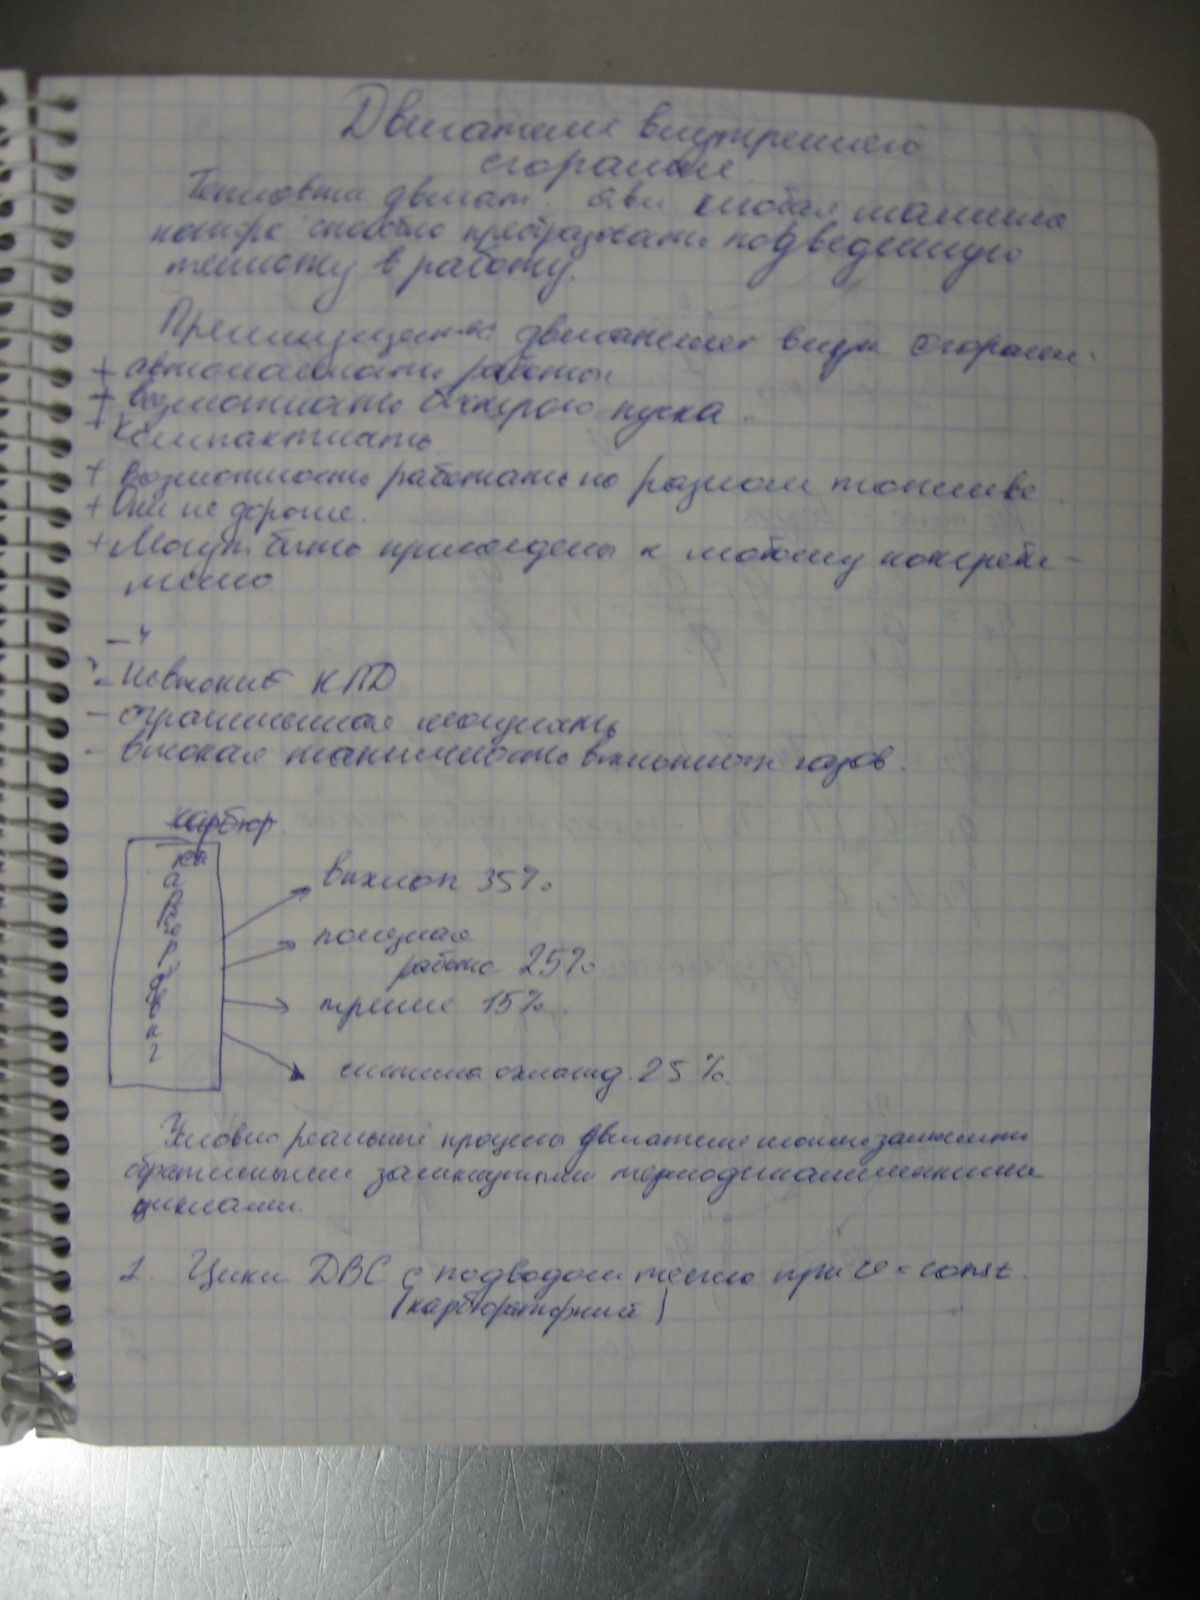 Двигатели внутреннего
сгорания
Тепловым двигат. явл любая машина
котора способно преобразовать подведенную
теплоту в работу.
Преимущества двигателей внутр сгорани.
+ автономность работы
+ возможность быстрого пуска.
+ Компактность
+ возможность работать на разном топливе.
+ Они не дороги.
+ Могут быть приведены к любому потребите-
лю
-ч
- Невысокий КПД
- ограниченная мощность
- высокая токсичность выхлопных газов.
карбюр.
ка
а
р
б
ю
р
д
в
и
г
выхлоп 35%
полезная
работа 25%
трение 15%
система охлажд. 25%.
Условно реальные процессы двигателя можно заменить
обратимыми замкнутыми термодинамическими
циклами.
1. Цикл ДВС с подводом тепла при v = const.
(карбюраторный)